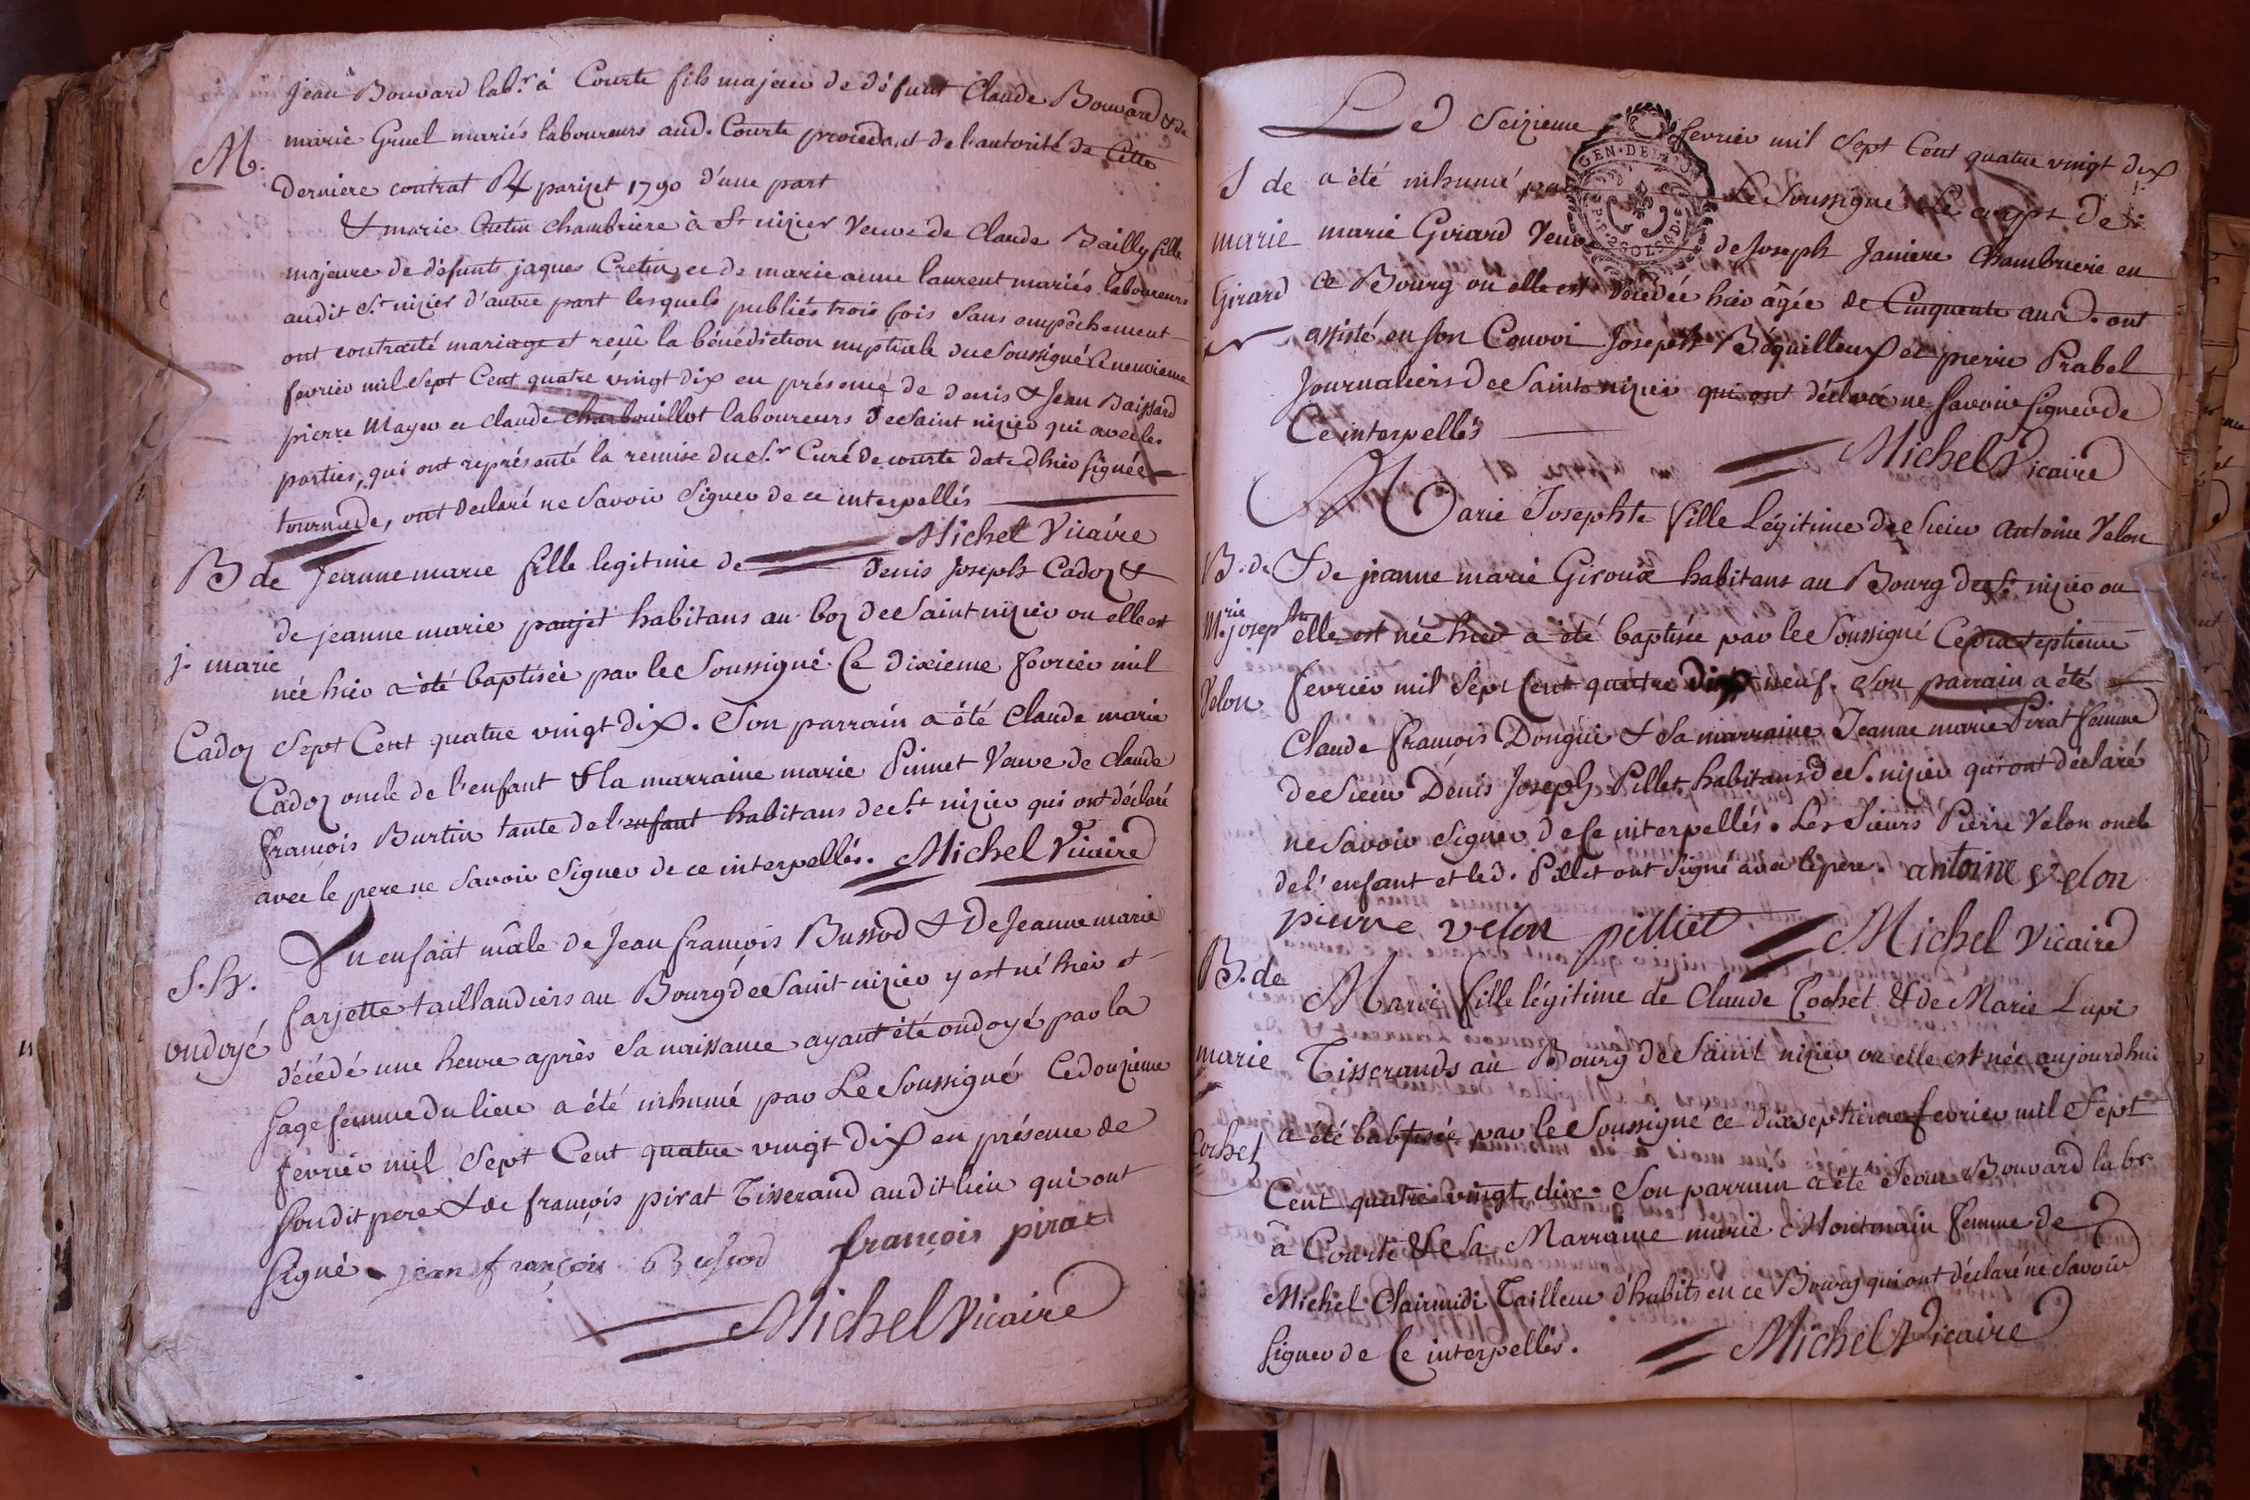 jean Bouvard labr. à Courte fils majeur de défunt Claude Bouvard & de
marie Gruel mariés laboureurs aud. Courte procédant de l'autorité de Cette
M.
derniere contrat Rx parijet 1790 d'une part
& marie Cretin chambriere à St nizier Veuve de Claude Bailly fille
majeure de défunts jaques Cretin et de marie anne laurent mariés laboureurs
audit St nizier d'autre part lesquels publiés trois fois sans empêchement
ont contracté mariage et reçû la bénédiction nuptiale du Soussigné Le neuvieme
fevrier mil sept Cent quatre vingt dix en présence de denis & Jean Baissard
pierre Mayer et claude charbouillot laboureurs de Saint nizier qui avec les
parties, qui ont représenté la remise du Sr Curé de courte date d'hier signée
tournude, ont declaré ne Savoir signer de ce interpellés
Michel Vicaire
B de Jeanne marie fille legitime de denis Joseph Cadoz &
de jeanne marie panjet habitans au boz de Saint nizier ou elle est
j. marie
née hier a été baptisée par le Soussigné Ce dixieme fevrier mil
Cadoz sept Cent quatre vingt dix. Son parrain a été claude marie
Cadoz oncle de l'enfant & la marraine marie Pinnet Veuve de claude
françois Burtin tante de l'enfant habitans de St nizier qui ont déclaré
avec le pere ne savoir signer de ce interpellés. Michel Vicaire
Un enfant mâle de Jean françois Bussod & De Jeanne marie
S. Sp.
farjette taillandiers au Bourg de Saint nizier y est né hier et
ondoyé
décédé une heure après sa naissance ayant été ondoyé par la
sage femme du lieu a été inhumé par Le Soussigné Ce douzieme
fevrier mil sept Cent quatre vingt dix en présence de
sondit pere & de françois pirat Tisserand audit lieu qui ont
signé. jean françois Bussod françois pirat
Michel Vicaire
Le seizieme fevrier mil sept Cent quatre vingt dix
S de a été inhumé par Le Soussigné Le corps de
marie marie Girard Veuve de Joseph Janiere Chambriere en
Girard ce Bourg ou elle est décédée hier âgée de Cinquante ans. ont
assisté en son Convoi Joseph Béquilleux et pierre Prabel
Journaliers de Saint nizier qui ont déclaré ne savoir signer de
Ce interpellés
Michel Vicaire
Marie Josephte fille Légitime de Sieur antoine Velon
B. de & de jeanne marie Giroux habitans au Bourg de St nizier ou
Mrie josephte elle est née hier a été baptisée par le Soussigné Ce dix septieme
Velon fevrier mil Sept Cent quatre neuf. Son parrain a été
Claude françois Donguis & sa marraine Jeanne marie Pirat femme
de Sieur Denis Joseph Pillet habitans de S. nizier qui ont déclaré
ne savoir signer de Ce interpellés. Les Sieurs Pierre Velon oncle
de l'enfant et led. Pillet ont signé avec le pere. antoine Velon
pierre velon pilliet Michel Vicaire
B. de
Marie fille légitime de Claude Cochet & de Marie Lupi
marie Tisserands au Bourg de Saint nizier ou elle est née aujourdhui
Cochet a été babtisée par le Soussigné ce dix septieme fevrier mil Sept
Cent quatre vingt dix. Son parrain a été Jean Bouvard labr
à Courte & sa Marraine marie Montmain femme de
Michel Clairmidi Tailleur d'habits en ce Bourg qui ont déclaré ne Savoir
signer de Ce interpellés.
Michel Vicaire